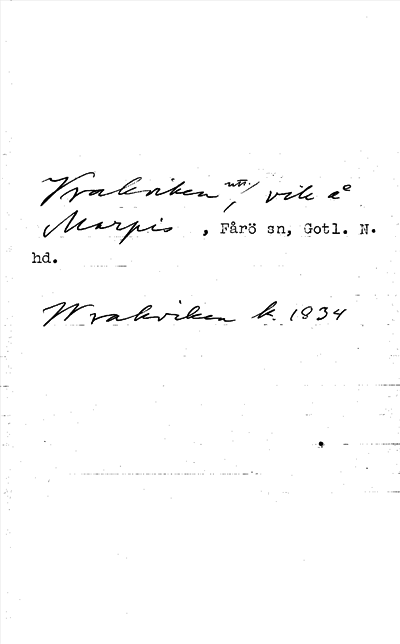 Vrakviken utt., vik å
Marpis , Fårö sn, Gotl. N.
hd.
Wrakviken k. 1834